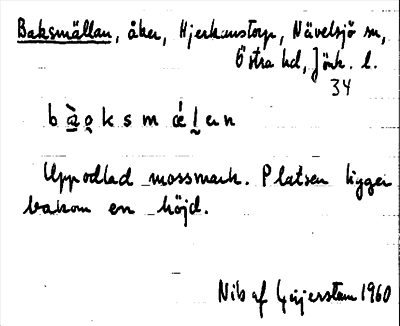 Baksmällan, åker, Hjerkanstorp, Nävelsjö sn,
Östra hd, Jönk. l.
34
b à̱ o̱ k s m ǽ l̠ a n
Uppodlad mossmark. Platsen ligger
bakom en höjd.
Nils af Geijerstam 1960